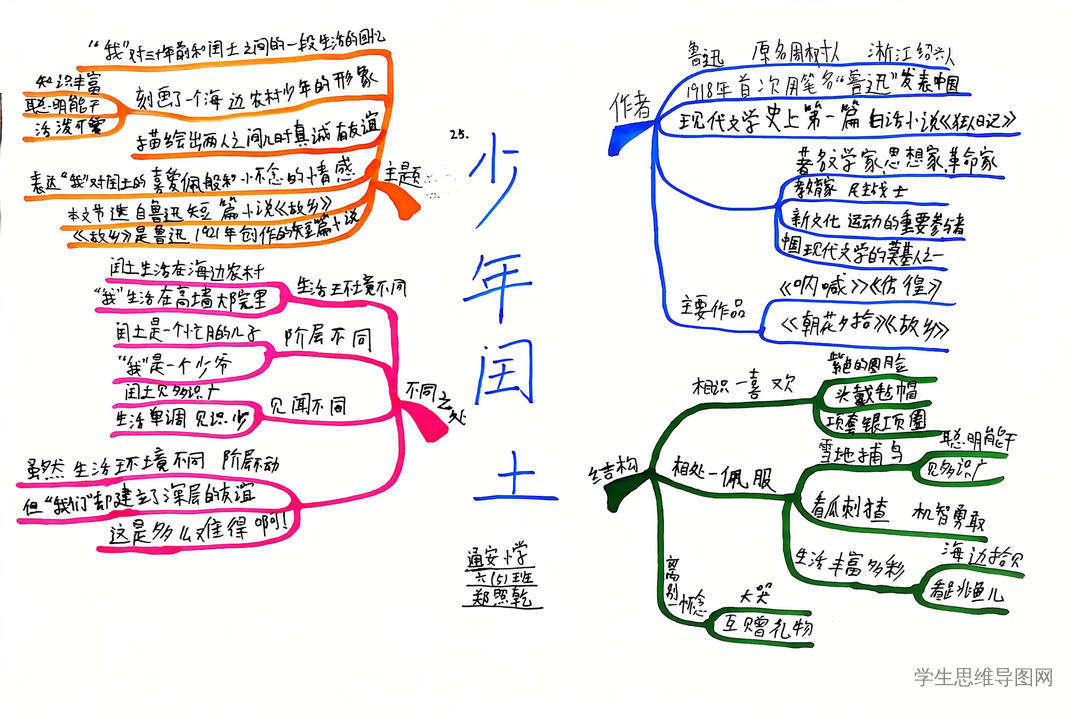 25.
少年闰土
通安小学
六(5)班
郑照乾
作者
鲁迅 原名周树人 浙江绍兴人
1918年首次用笔名“鲁迅”发表中国
现代文学史上第一篇白话小说《狂人日记》
著名文学家、思想家、革命家
教育家 民主战士
新文化运动的重要参与者
中国现代文学的奠基人之一
主要作品
《呐喊》《彷徨》
《朝花夕拾》《故乡》
主题
“我”对三十年前和闰土之间的一段生活的回忆
刻画了一个海边农村少年的形象
知识丰富
聪明能干
活泼可爱
描绘出两人之间儿时真诚友谊
表达“我”对闰土的喜爱佩服和怀念的情感
本文节选自鲁迅短篇小说《故乡》
《故乡》是鲁迅1921年创作的短篇小说
不同之处
生活环境不同
闰土生活在海边农村
“我”生活在高墙大院里
阶层不同
闰土是一个忙月的儿子
“我”是一个少爷
见闻不同
闰土见多识广
生活单调 见识少
虽然生活环境不同 阶层不动
但“我们”却建立了深层的友谊
这是多么难得啊!
结构
相识一喜欢
紫色的圆脸
头戴毡帽
项套银项圈
相处一佩服
雪地捕鸟
聪明能干
见多识广
看瓜刺猹 机智勇敢
生活丰富多彩
海边拾贝
看跳鱼儿
离别一怀念
大哭
互赠礼物
学生思维导图网